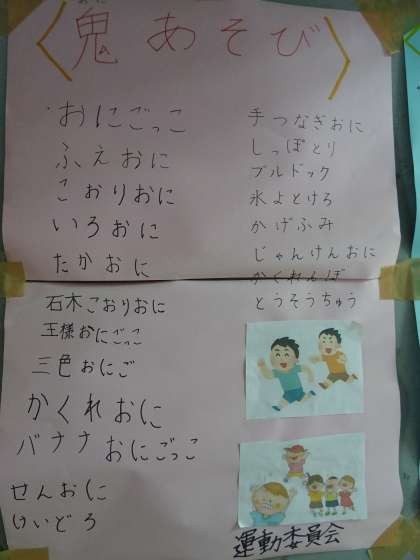 おに
鬼あそび
おにごっこ
ふえおに
こおりおに
いろおに
たかおに
石木こおりおに
王様おにごっこ
三色おにご
かくれおに
バナナおにごっこ
せんおに
けいどろ
手つなぎおに
しっぽとり
ブルドック
氷よとけろ
かげふみ
じゃんけんおに
かくれんぼ
とうそうちゅう
運動委員会